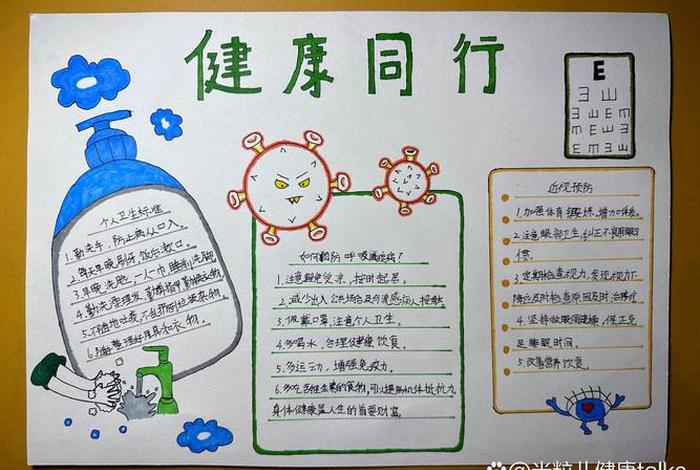 健康同行
E
个人卫生标准
1.勤洗手，防止病从口入。
2.每天早晚刷牙，饭后漱口。
3.早晚洗脸，一人一巾，睡前洗脚
4.勤洗澡理发，勤剪指甲勤换衣物
5.不随地吐痰，不乱扔垃圾杂物。
6.整理好用具和衣物。
如何预防呼吸道疾病？
1.注意避免受凉，按时起居。
2.减少出入公共场合及与流感病人接触
3.佩戴口罩，注意个人卫生。
4.多喝水，合理健康饮食。
5.多运动，增强免疫力。
6.多吃含维生素的食物，可以提高机体抵抗力。
身体健康是人生的首要财富。
近视预防
1.加强体育锻炼，增加体质。
2.注意眼部卫生，纠正不良用眼习
惯。
3.定期检查视力，发现视力下
降应及时检查原因及时治疗
4.坚持做眼保健操，保正充
足睡眠时间。
5.改善营养饮食。